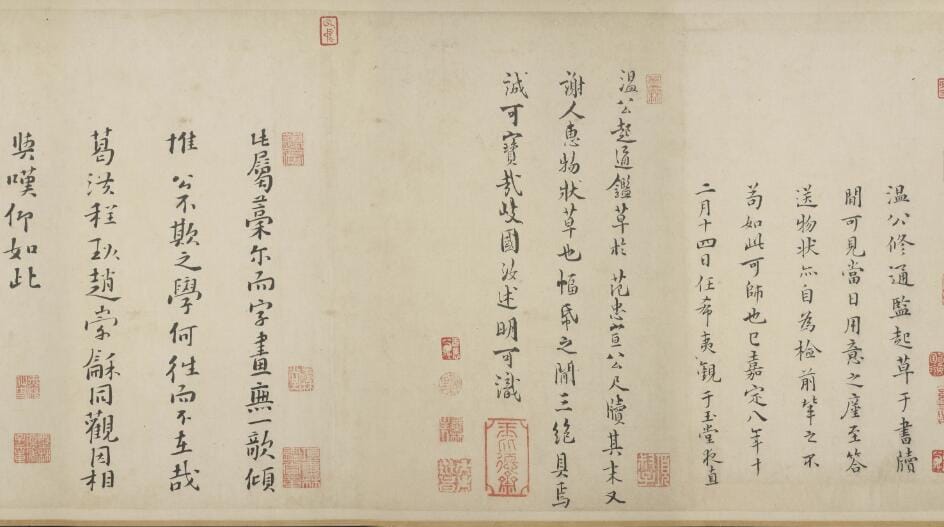 温公修通監起草于書牘
間可見當日用意之廑至答
送物狀亦自為檢前軰之不
苟如此可師也已嘉定八年十
二月十四日任希夷觀于玉堂夜直
温公起通鑑草於范忠宣公尺牘其末又
謝人惠物狀草也幅帋之間三絶具焉
誠可寶哉歧國汝述明可識
此屬藁尒而字畫無一欹傾
推公不欺之學何往而不在哉
葛洪程珌趙崇龢同觀因相
與嘆仰如此